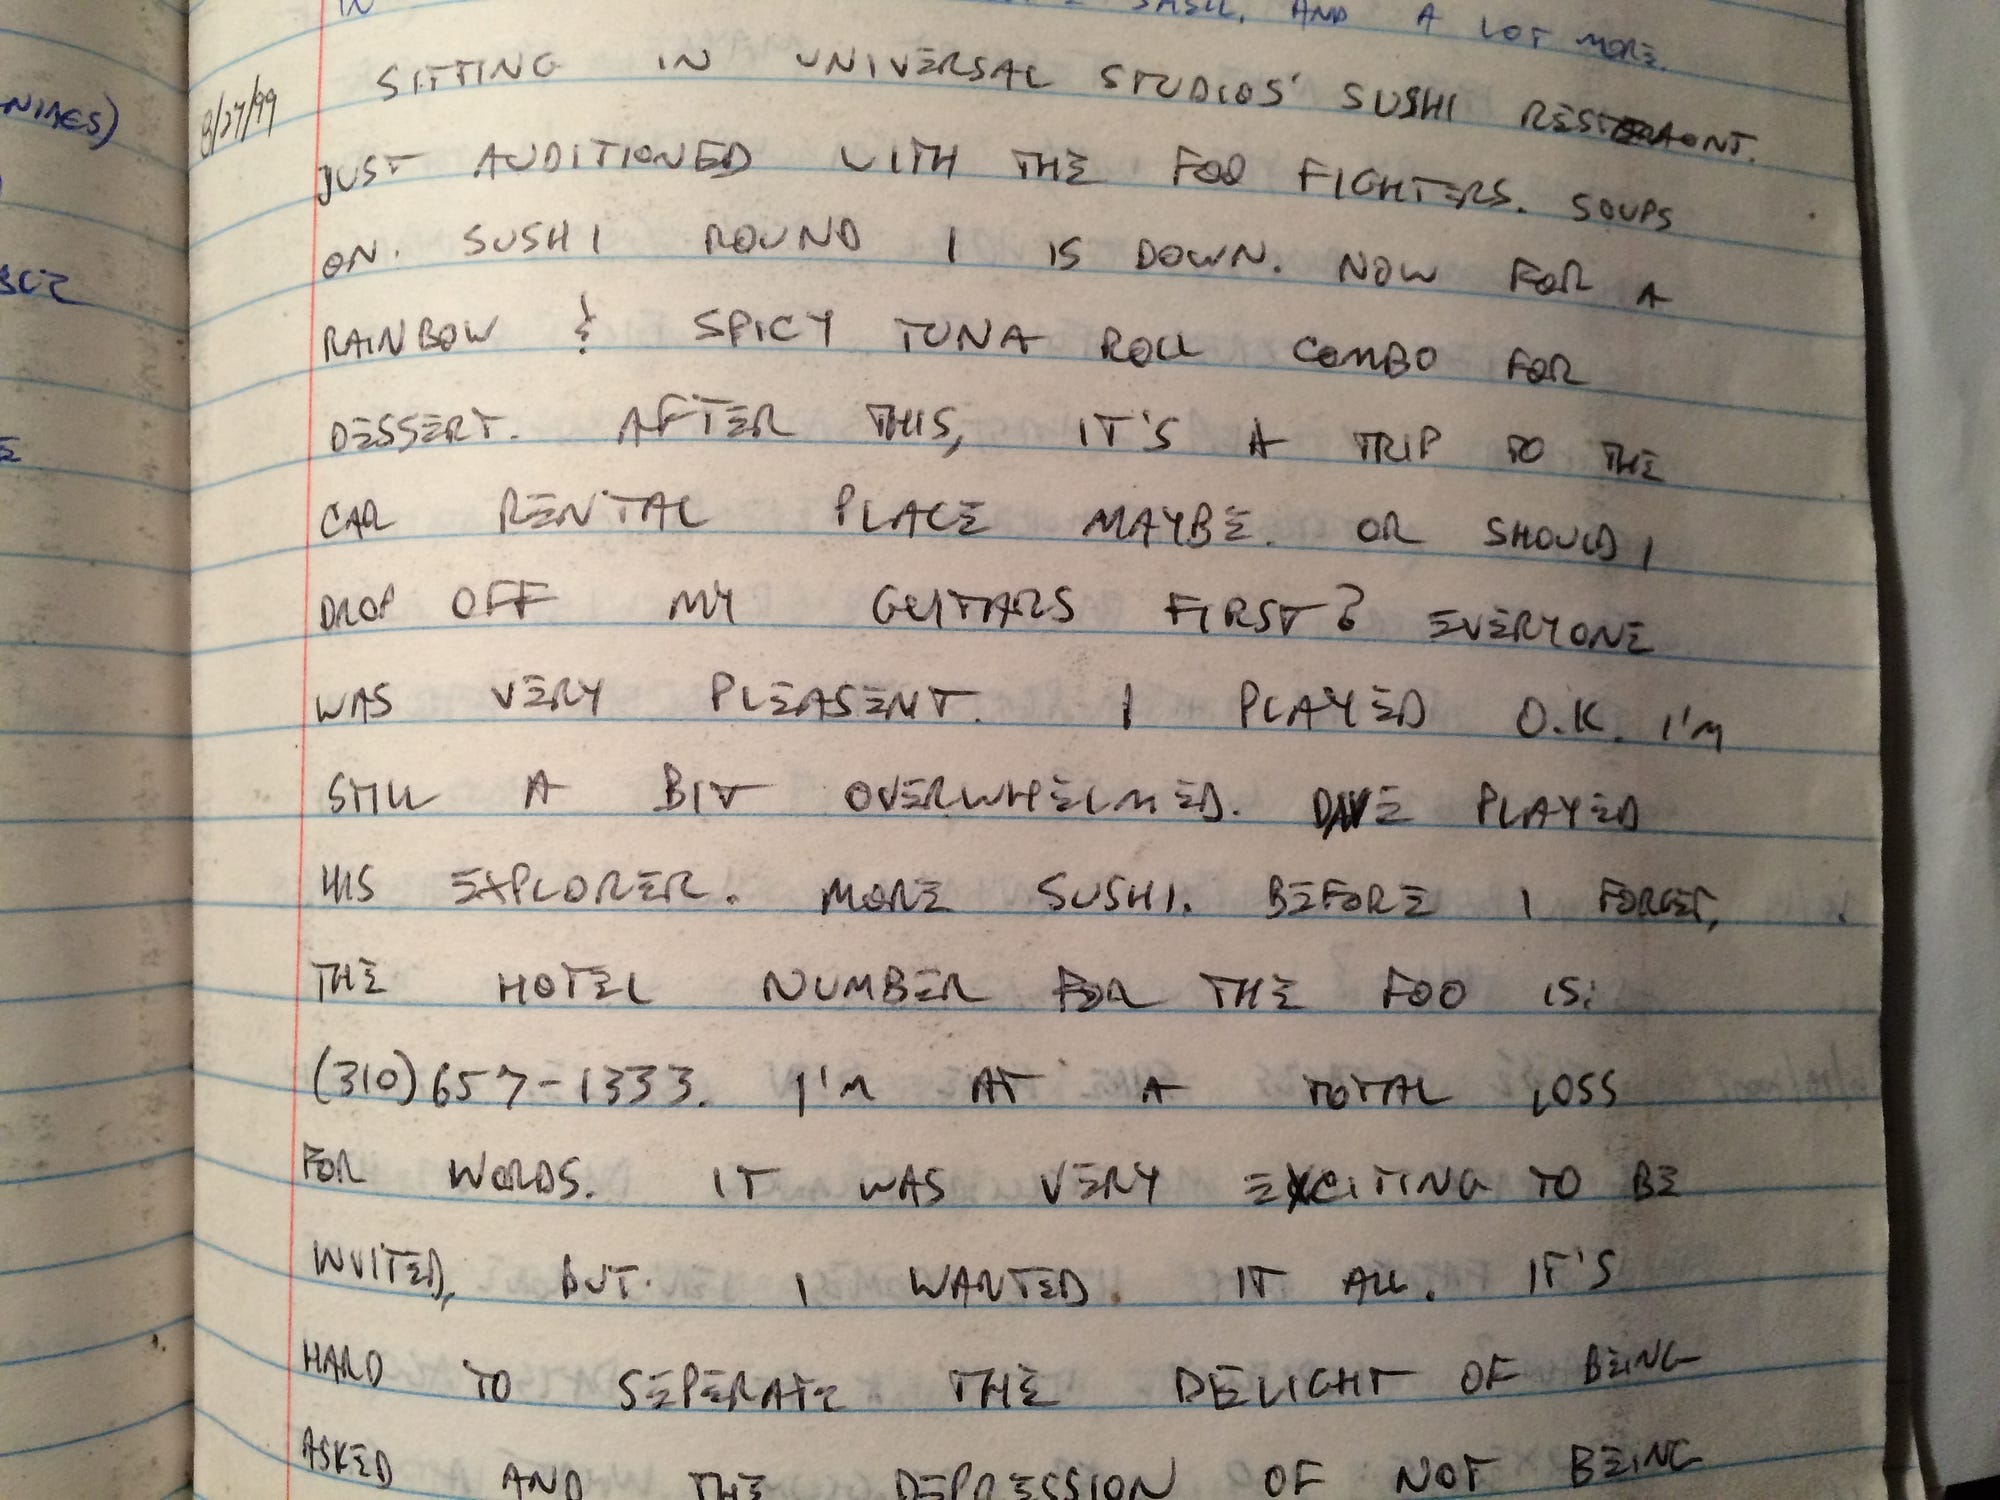 IN SHELL, AND A LOT MORE.
NIAES)
8/27/99 SITTING IN UNIVERSAL STUDIOS' SUSHI RESTRAONT.
JUST AUDITIONED WITH THE FOO FIGHTERS. SOUPS
ON. SUSHI ROUND 1 IS DOWN. NOW FOR A
RAINBOW & SPICY TUNA ROLL COMBO FOR
DESSERT. AFTER THIS, IT'S A TRIP TO THE
CAR RENTAL PLACE MAYBE. OR SHOULD I
DROP OFF MY GUITARS FIRST? EVERYONE
WAS VERY PLEASENT. I PLAYED O.K. I'M
STILL A BIT OVERWHELMED. DAVE PLAYED
HIS EXPLORER. MORE SUSHI. BEFORE I FORGET,
THE HOTEL NUMBER FOR THE FOO IS:
(310)657-1333. I'M AT A TOTAL LOSS
FOR WORDS. IT WAS VERY EXCITING TO BE
INVITED, BUT. I WANTED. IT ALL. IT'S
HARD TO SEPERATE THE DELIGHT OF BEING
ASKED AND THE DEPRESSION OF NOT BEING